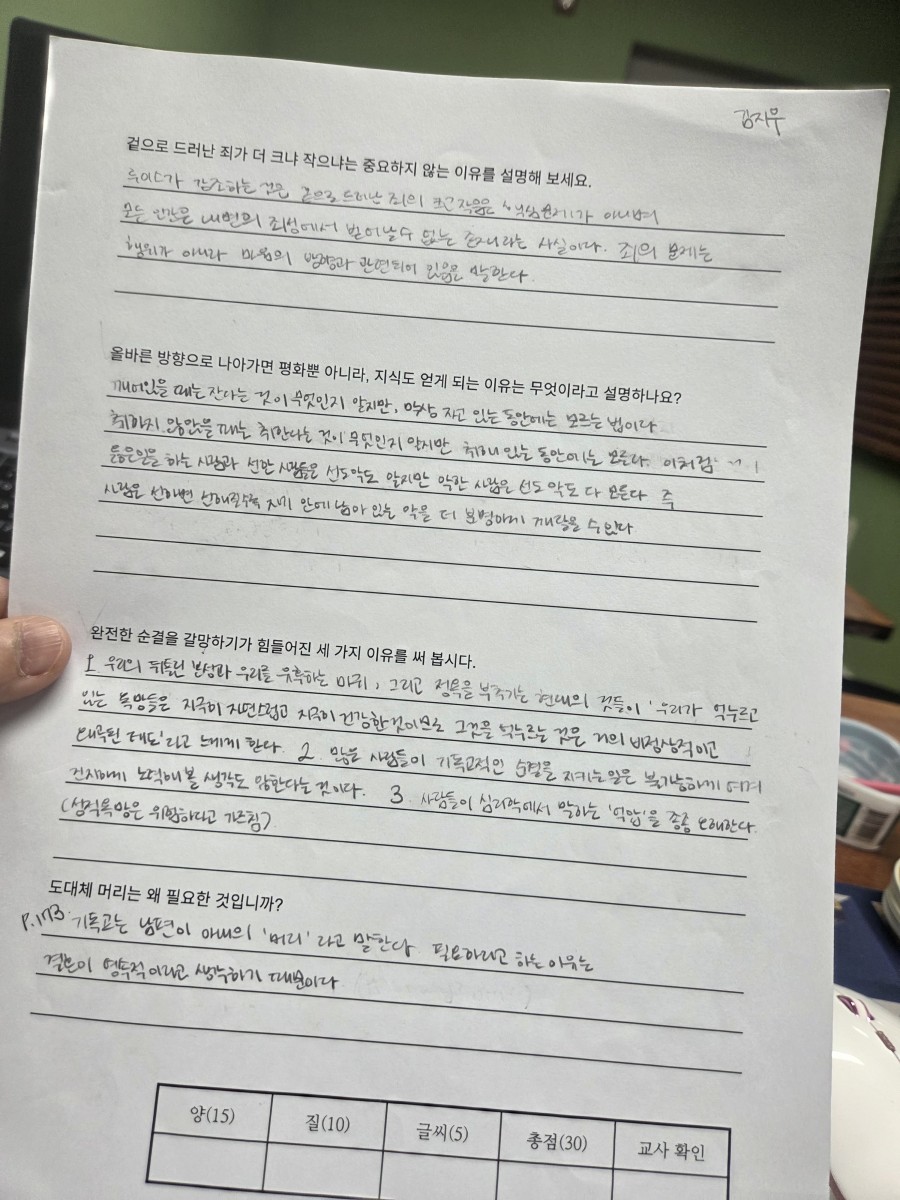 김지우
겉으로 드러난 죄가 더 크냐 작으냐는 중요하지 않는 이유를 설명해 보세요.
루이스가 강조하는 것은 겉으로 드러난 죄의 크고 작음은 핵심문제가 아니며
모든 인간은 내면의 죄성에서 벗어날 수 없는 존재라는 사실이다. 죄의 문제는
행위가 아니라 마음의 방향과 관련되어 있음을 말한다.
올바른 방향으로 나아가면 평화뿐 아니라, 지식도 얻게 되는 이유는 무엇이라고 설명하나요?
깨어있을 때는 잔다는 것이 무엇인지 알지만, 막상 자고 있는 동안에는 모르는 법이다
취하지 않았을 때는 취한다는 것이 무엇인지 알지만 취해 있는 동안에는 모른다. 이처럼
일을 하는 사람과 선한 사람들은 선도 악도 알지만 악한 사람은 선도 악도 다 모른다 즉
사람은 선하면 선해질수록 자기 안에 남아 있는 악을 더 분명하게 깨달을 수 있다
완전한 순결을 갈망하기가 힘들어진 세 가지 이유를 써 봅시다.
1. 우리의 뒤틀린 본성과 우리를 유혹하는 마귀, 그리고 정욕을 부추기는 현대의 것들이 '우리가 억누르고
있는 욕망들은 지극히 자연스럽고 지극히 건강한것이므로 그것을 억누르는 것은 거의 비정상적이고
왜곡된 태도'라고 느끼게 한다. 2. 많은 사람들이 기독교적인 순결을 지키는일은 불가능하게 여겨
진지하게 노력해 볼 생각도 안한다는 것이다. 3. 사람들이 심리학에서 말하는 '억압'을 종종 오해한다.
(성적욕망은 위험하다고 가르침)
도대체 머리는 왜 필요한 것입니까?
P.173. 기독교는 남편이 아내의 '머리'라고 말한다. 필요하다고 하는 이유는
결혼이 영구적이라고 생각하기 때문이다
양(15) 질(10) 글씨(5) 총점(30) 교사 확인